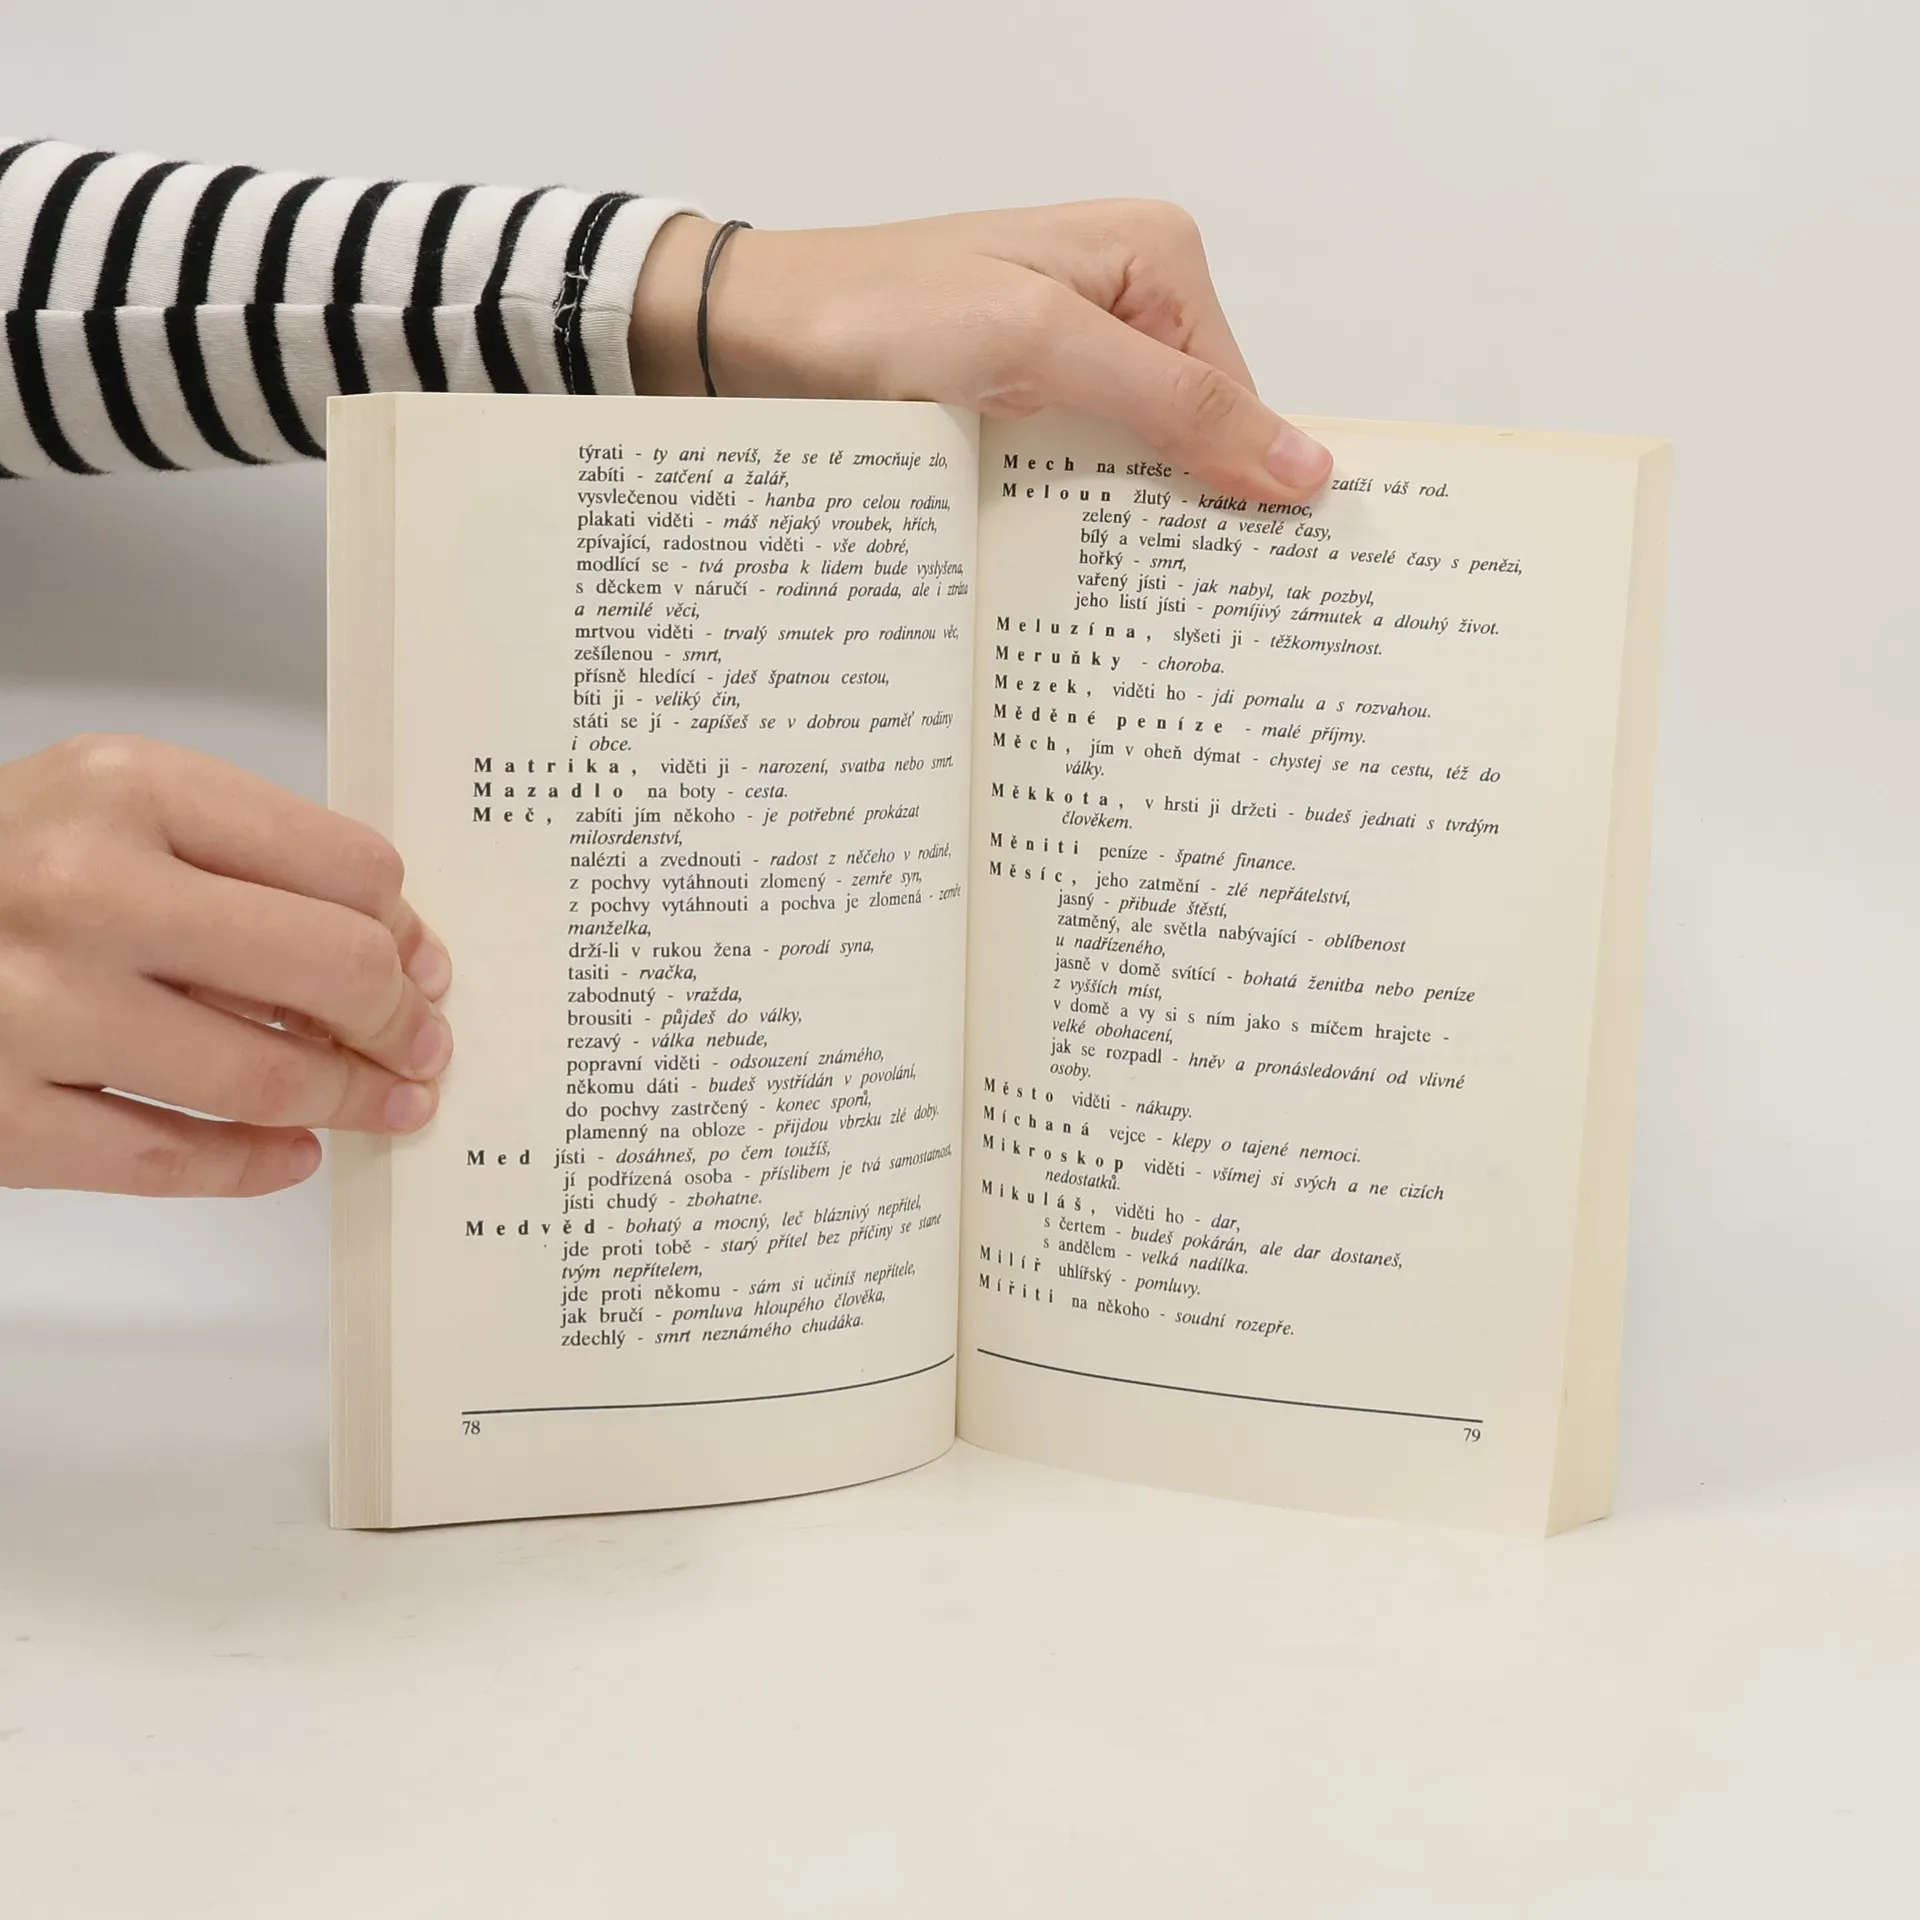 týrati - ty ani nevíš, že se tě zmocňuje zlo,
zabíti - zatčení a žalář,
vysvlečenou viděti - hanba pro celou rodinu,
plakati viděti - máš nějaký vroubek, hřích,
zpívající, radostnou viděti - vše dobré,
modlící se - tvá prosba k lidem bude vyslyšena,
s děckem v náručí - rodinná porada, ale i ztráta
a nemilé věci,
mrtvou viděti - trvalý smutek pro rodinnou věc,
zešílenou - smrt,
přísně hledící - jdeš špatnou cestou,
bíti ji - veliký čin,
státi se jí - zapíšeš se v dobrou paměť rodiny
i obce.
Matrika, viděti ji - narození, svatba nebo smrt.
Mazadlo na boty - cesta.
Meč, zabíti jím někoho - je potřebné prokázat
milosrdenství,
nalézti a zvednouti - radost z něčeho v rodině,
z pochvy vytáhnouti zlomený - zemře syn,
z pochvy vytáhnouti a pochva je zlomená - zemře
manželka,
drží-li v rukou žena - porodí syna,
tasiti - rvačka,
zabodnutý - vražda,
brousiti - půjdeš do války,
rezavý - válka nebude,
popravní viděti - odsouzení známého,
někomu dáti - budeš vystřídán v povolání,
do pochvy zastrčený - konec sporů,
plamenný na obloze - přijdou vbrzku zlé doby.
Med jísti - dosáhneš, po čem toužíš,
jí podřízená osoba - příslibem je tvá samostatnost,
jísti chudý - zbohatne.
Medvěd - bohatý a mocný, leč bláznivý nepřítel,
jde proti tobě - starý přítel bez příčiny se stane
tvým nepřítelem,
jde proti někomu - sám si učiníš nepřítele,
jak bručí - pomluva hloupého člověka,
zdechlý - smrt neznámého chudáka.
78
Mech na střeše - zatíží váš rod.
Meloun žlutý - krátká nemoc,
zelený - radost a veselé časy,
bílý a velmi sladký - radost a veselé časy s penězi,
hořký - smrt,
vařený jísti - jak nabyl, tak pozbyl,
jeho listí jísti - pomíjivý zármutek a dlouhý život.
Meluzína, slyšeti ji - těžkomyslnost.
Meruňky - choroba.
Mezek, viděti ho - jdi pomalu a s rozvahou.
Měděné peníze - malé příjmy.
Měch, jím v oheň dýmat - chystej se na cestu, též do
války.
Měkkota, v hrsti ji držeti - budeš jednati s tvrdým
člověkem.
Měniti peníze - špatné finance.
Měsíc, jeho zatmění - zlé nepřátelství,
jasný - přibude štěstí,
zatměný, ale světla nabývající - oblíbenost
u nadřízeného,
jasně v domě svítící - bohatá ženitba nebo peníze
z vyšších míst,
v domě a vy si s ním jako s míčem hrajete -
velké obohacení,
jak se rozpadl - hněv a pronásledování od vlivné
osoby.
Město viděti - nákupy.
Míchaná vejce - klepy o tajené nemoci.
Mikroskop viděti - všímej si svých a ne cizích
nedostatků.
Mikuláš, viděti ho - dar,
s čertem - budeš pokárán, ale dar dostaneš,
s andělem - velká nadílka.
Milíř uhlířský - pomluvy.
Mířiti na někoho - soudní rozepře.
79